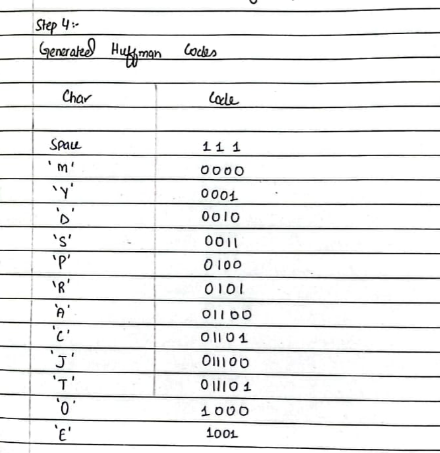 Step 4:-
Generated Huffman Codes
Char Code
Space 111
'M' 0000
'Y' 0001
'D' 0010
'S' 0011
'P' 0100
'R' 0101
'A' 01100
'C' 01101
'J' 011100
'T' 011101
'O' 1000
'E' 1001